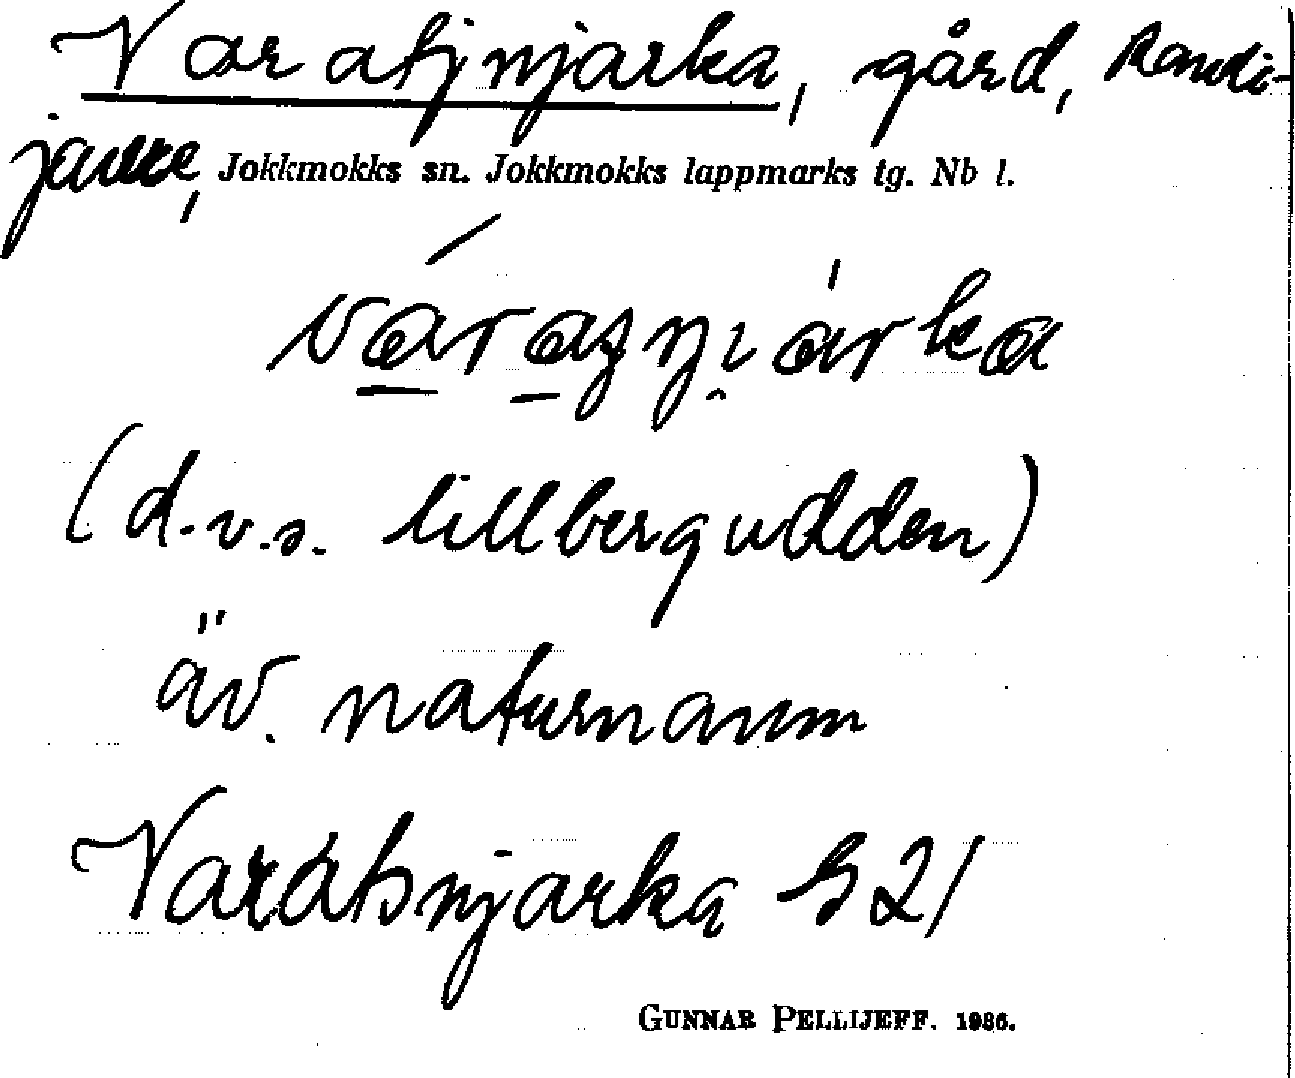 Varatjnjarka, gård, Randi-
jaure, Jokkmokks sn. Jokkmokks lappmarks tg. Nb l.
(d.v.s. lillbergudden)
äv. naturnamn
Varatsnjarka S 21
GUNNAR PELLIJEFF. 1986.